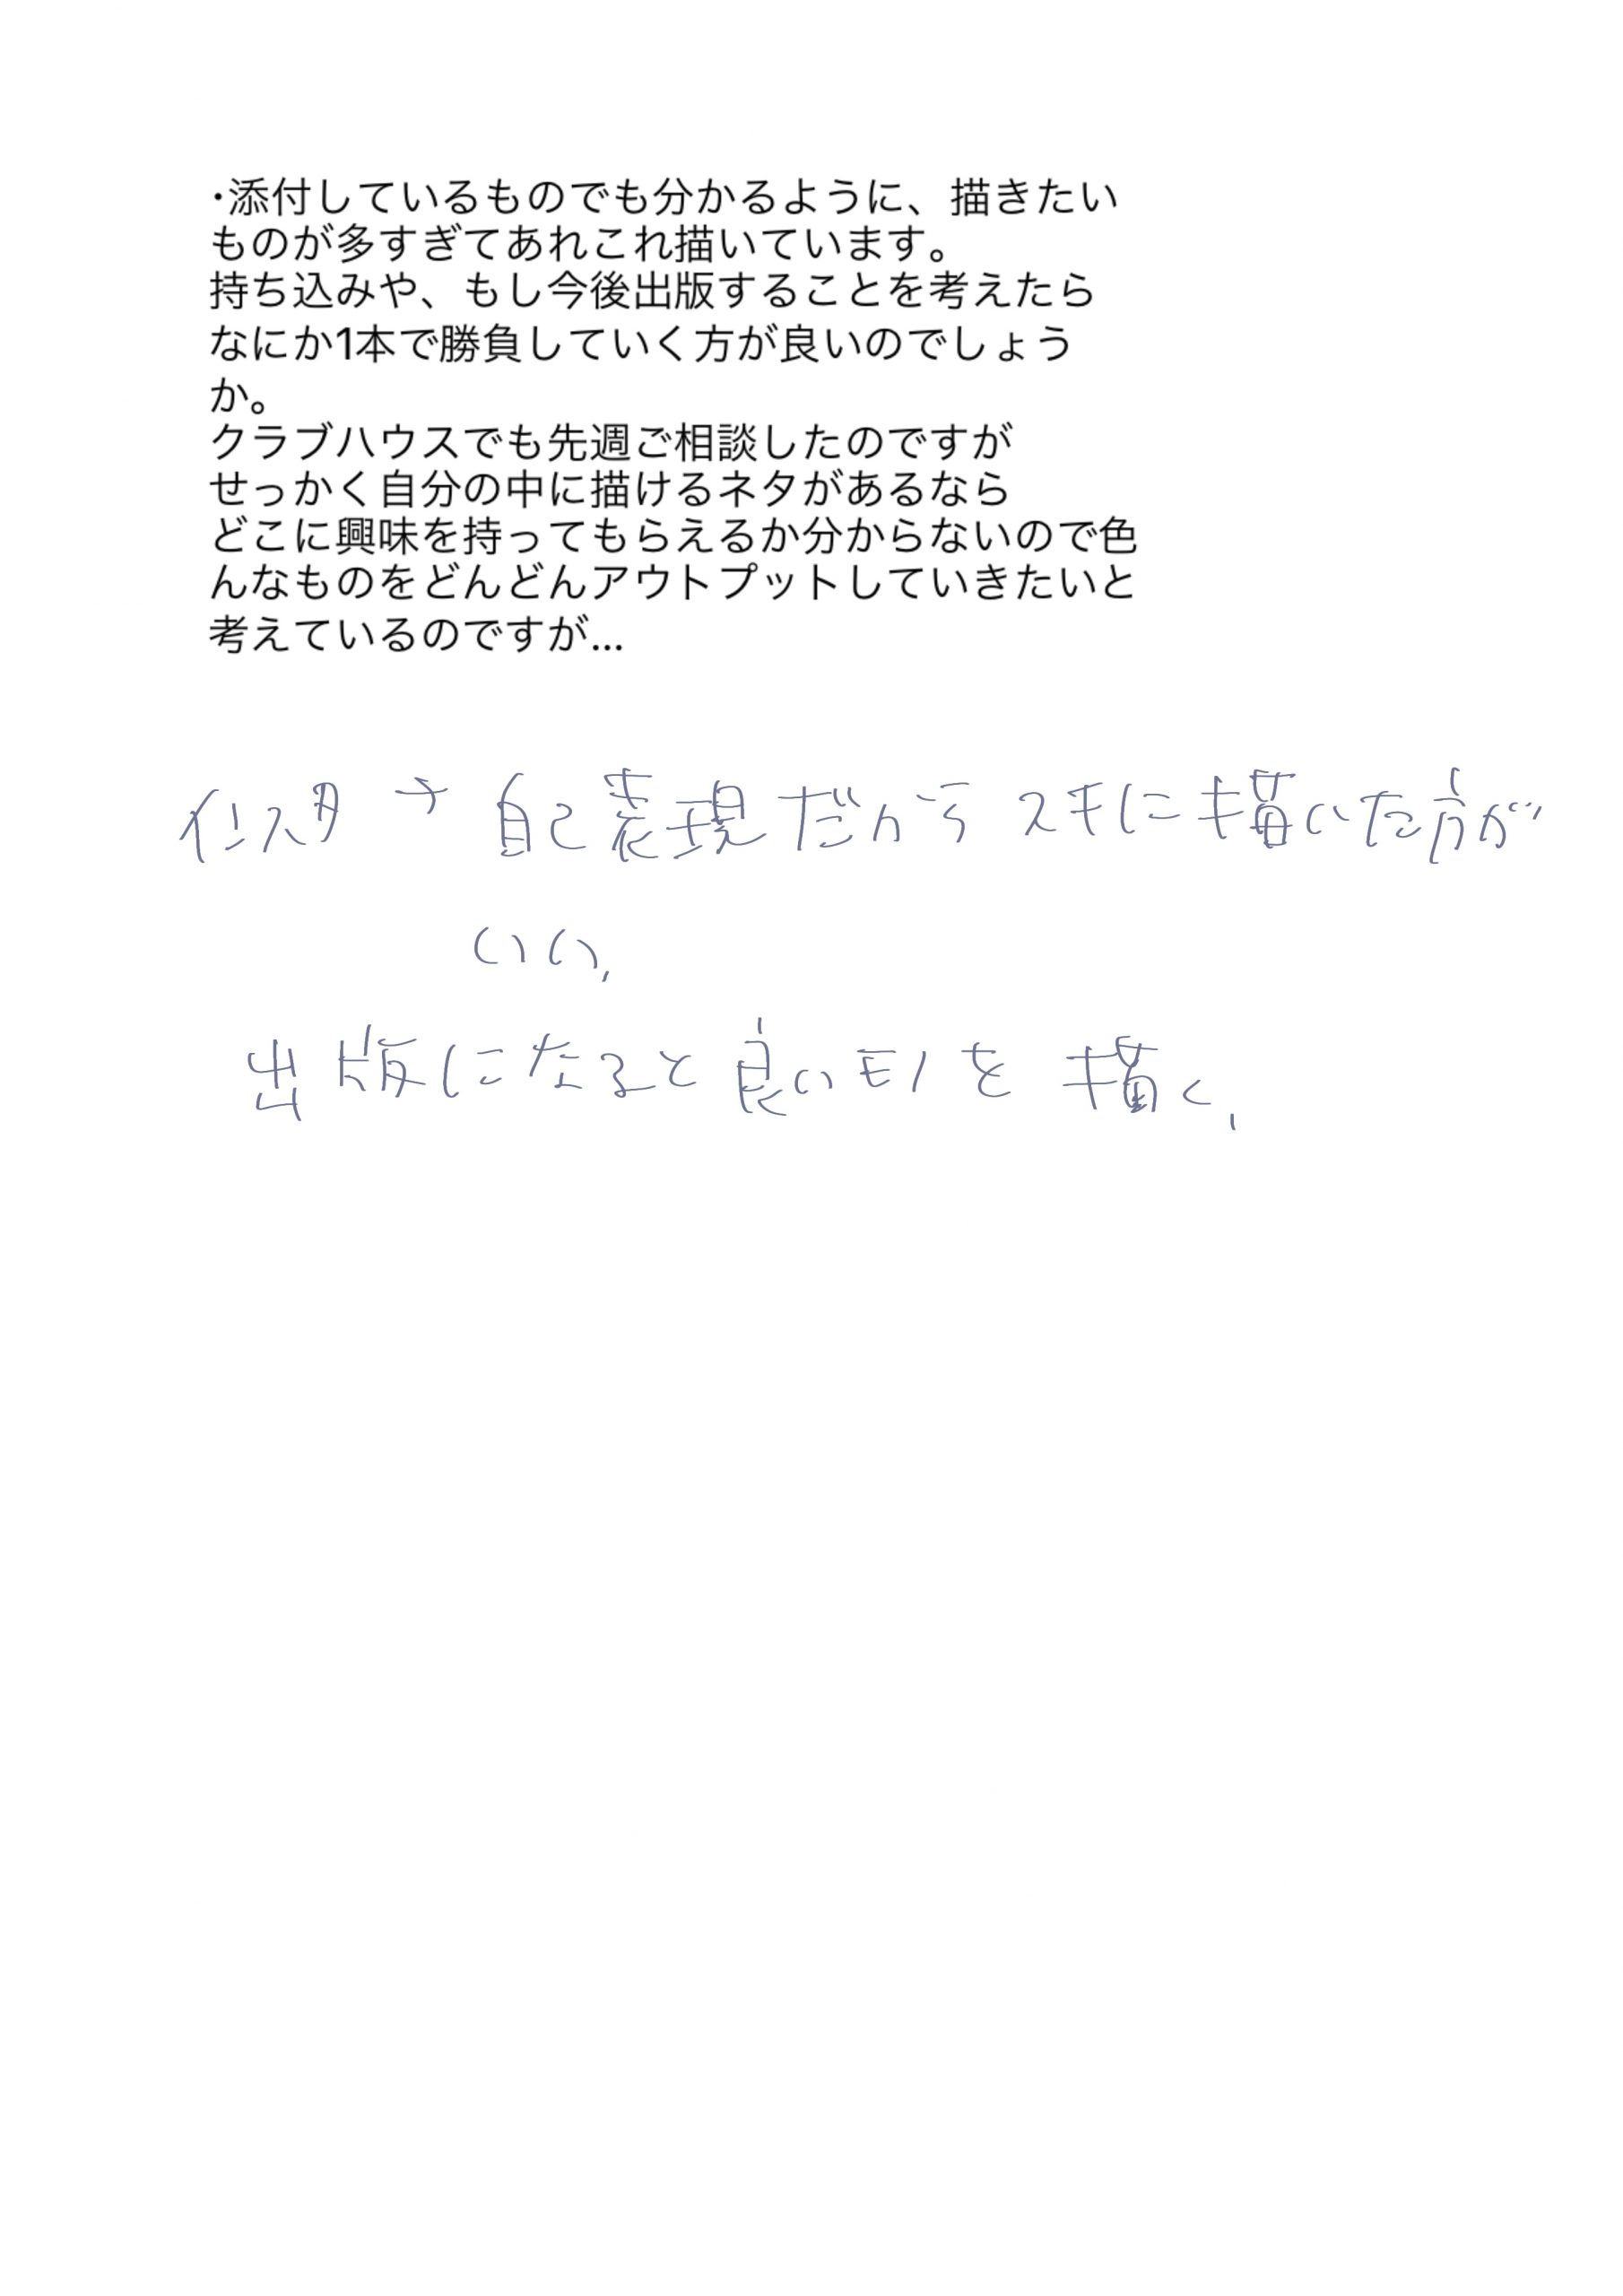 ・添付しているものでも分かるように、描きたい
ものが多すぎてあれこれ描いています。
持ち込みや、もし今後出版することを考えたら
なにか1本で勝負していく方が良いのでしょう
か。
クラブハウスでも先週ご相談したのですが
せっかく自分の中に描けるネタがあるなら
どこに興味を持ってもらえるか分からないので色
んなものをどんどんアウトプットしていきたいと
考えているのですが...
インスタ → 自己表現だから スキに描いた方が
いい、
出版になると良いモノを描く、